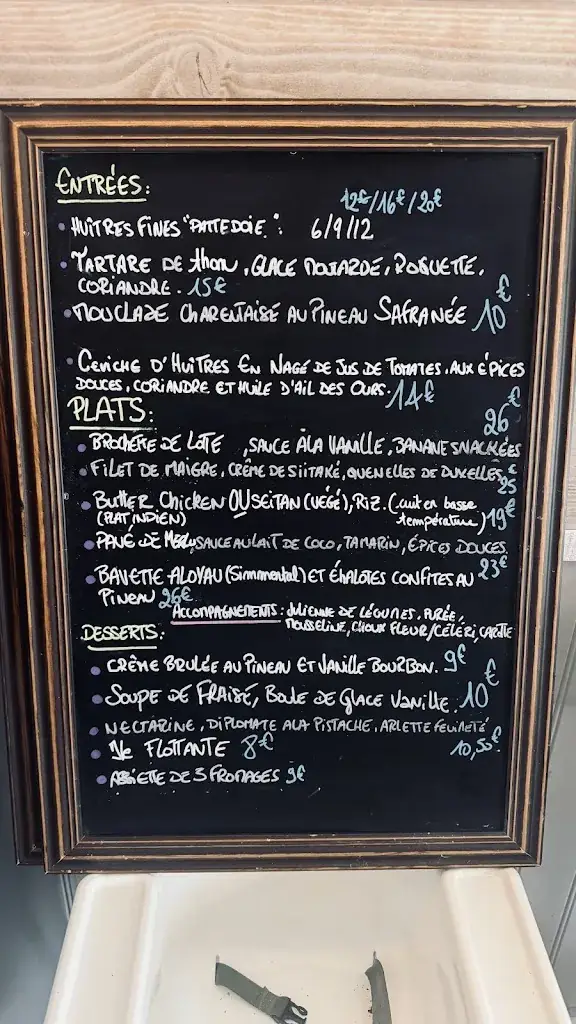 ENTRÉES:
12€/16€/20€
• HUÎTRES FINES "PATTEDOIE": 6/9/12
• TARTARE DE thon, GLACE MOUTARDE, ROQUETTE,
CORIANDRE. 15€
• MOUCLADE CHARENTAISE AU PINEAU SAFRANÉE 10€
• CEVICHE D'HUÎTRES EN NAGE DE JUS DE TOMATES, AUX ÉPICES
DOUCES, CORIANDRE ET HUILE D'AIL DES OURS. 14€
PLATS:
26€
• BROCHETTE DE LOTTE, SAUCE À LA VANILLE, BANANE SNACKÉES
• FILET DE MAIGRE, CRÈME DE SIITAKÉ, QUENELLES DE DUXELLES 25€
• Butter Chicken OU SEITAN (VÉGÉ), RIZ. (cuit en basse
(PLAT INDIEN) température) 19€
• PAVÉ DE MERLU, SAUCE AU LAIT DE COCO, TAMARIN, ÉPICES DOUCES.
23€
• BAVETTE ALOYAU (Simmental) ET ÉHALOTES CONFITES AU
PINEAU 26€
ACCOMPAGNEMENTS: JULIENNE DE LÉGUMES, PURÉE,
MOUSSELINE, CHOUX FLEUR/CÉLÉRI, CAROTTE
DESSERTS:
• CRÈME BRULÉE AU PINEAU ET VANILLE BOURBON. 9€
• SOUPE DE FRAISE, BOULE DE GLACE VANILLE. 10€
• NECTARINE, DIPLOMATE A LA PISTACHE, ARLETTE
• FLOTTANTE 8€ 10,50€
• ASSIETTE DE 3 FROMAGES 9€